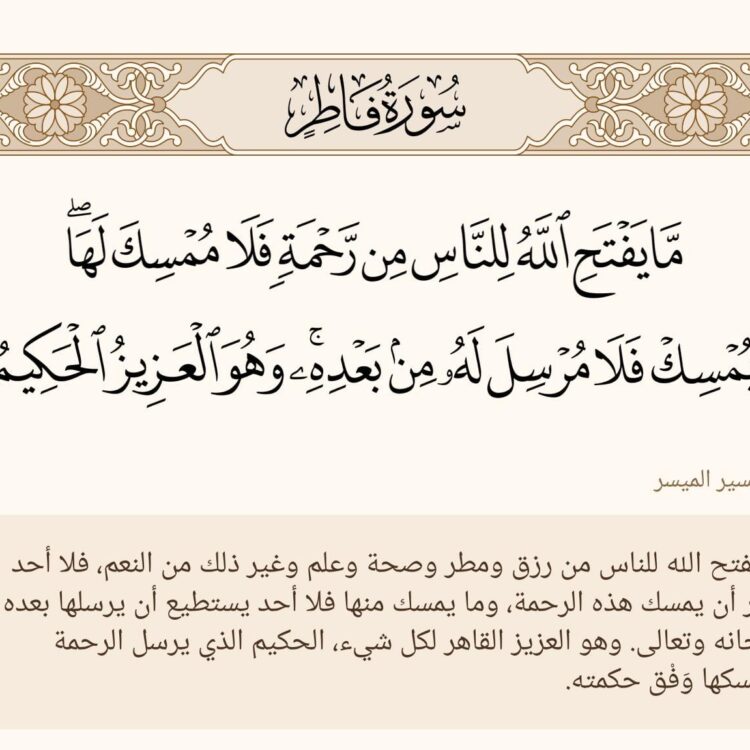 سُورَةُ فَاطِرٍ
مَّا يَفْتَحِ ٱللَّهُ لِلنَّاسِ مِن رَّحْمَةٍ فَلَا مُمْسِكَ لَهَاۖ
يُمْسِكْ فَلَا مُرْسِلَ لَهُۥ مِنۢ بَعْدِهِۦۚ وَهُوَ ٱلْعَزِيزُ ٱلْحَكِيمُ
سير الميسر
فتح الله للناس من رزق ومطر وصحة وعلم وغير ذلك من النعم، فلا أحد
أن يمسك هذه الرحمة، وما يمسك منها فلا أحد يستطيع أن يرسلها بعده
حانه وتعالى. وهو العزيز القاهر لكل شيء، الحكيم الذي يرسل الرحمة
سكها وَفْق حكمته.